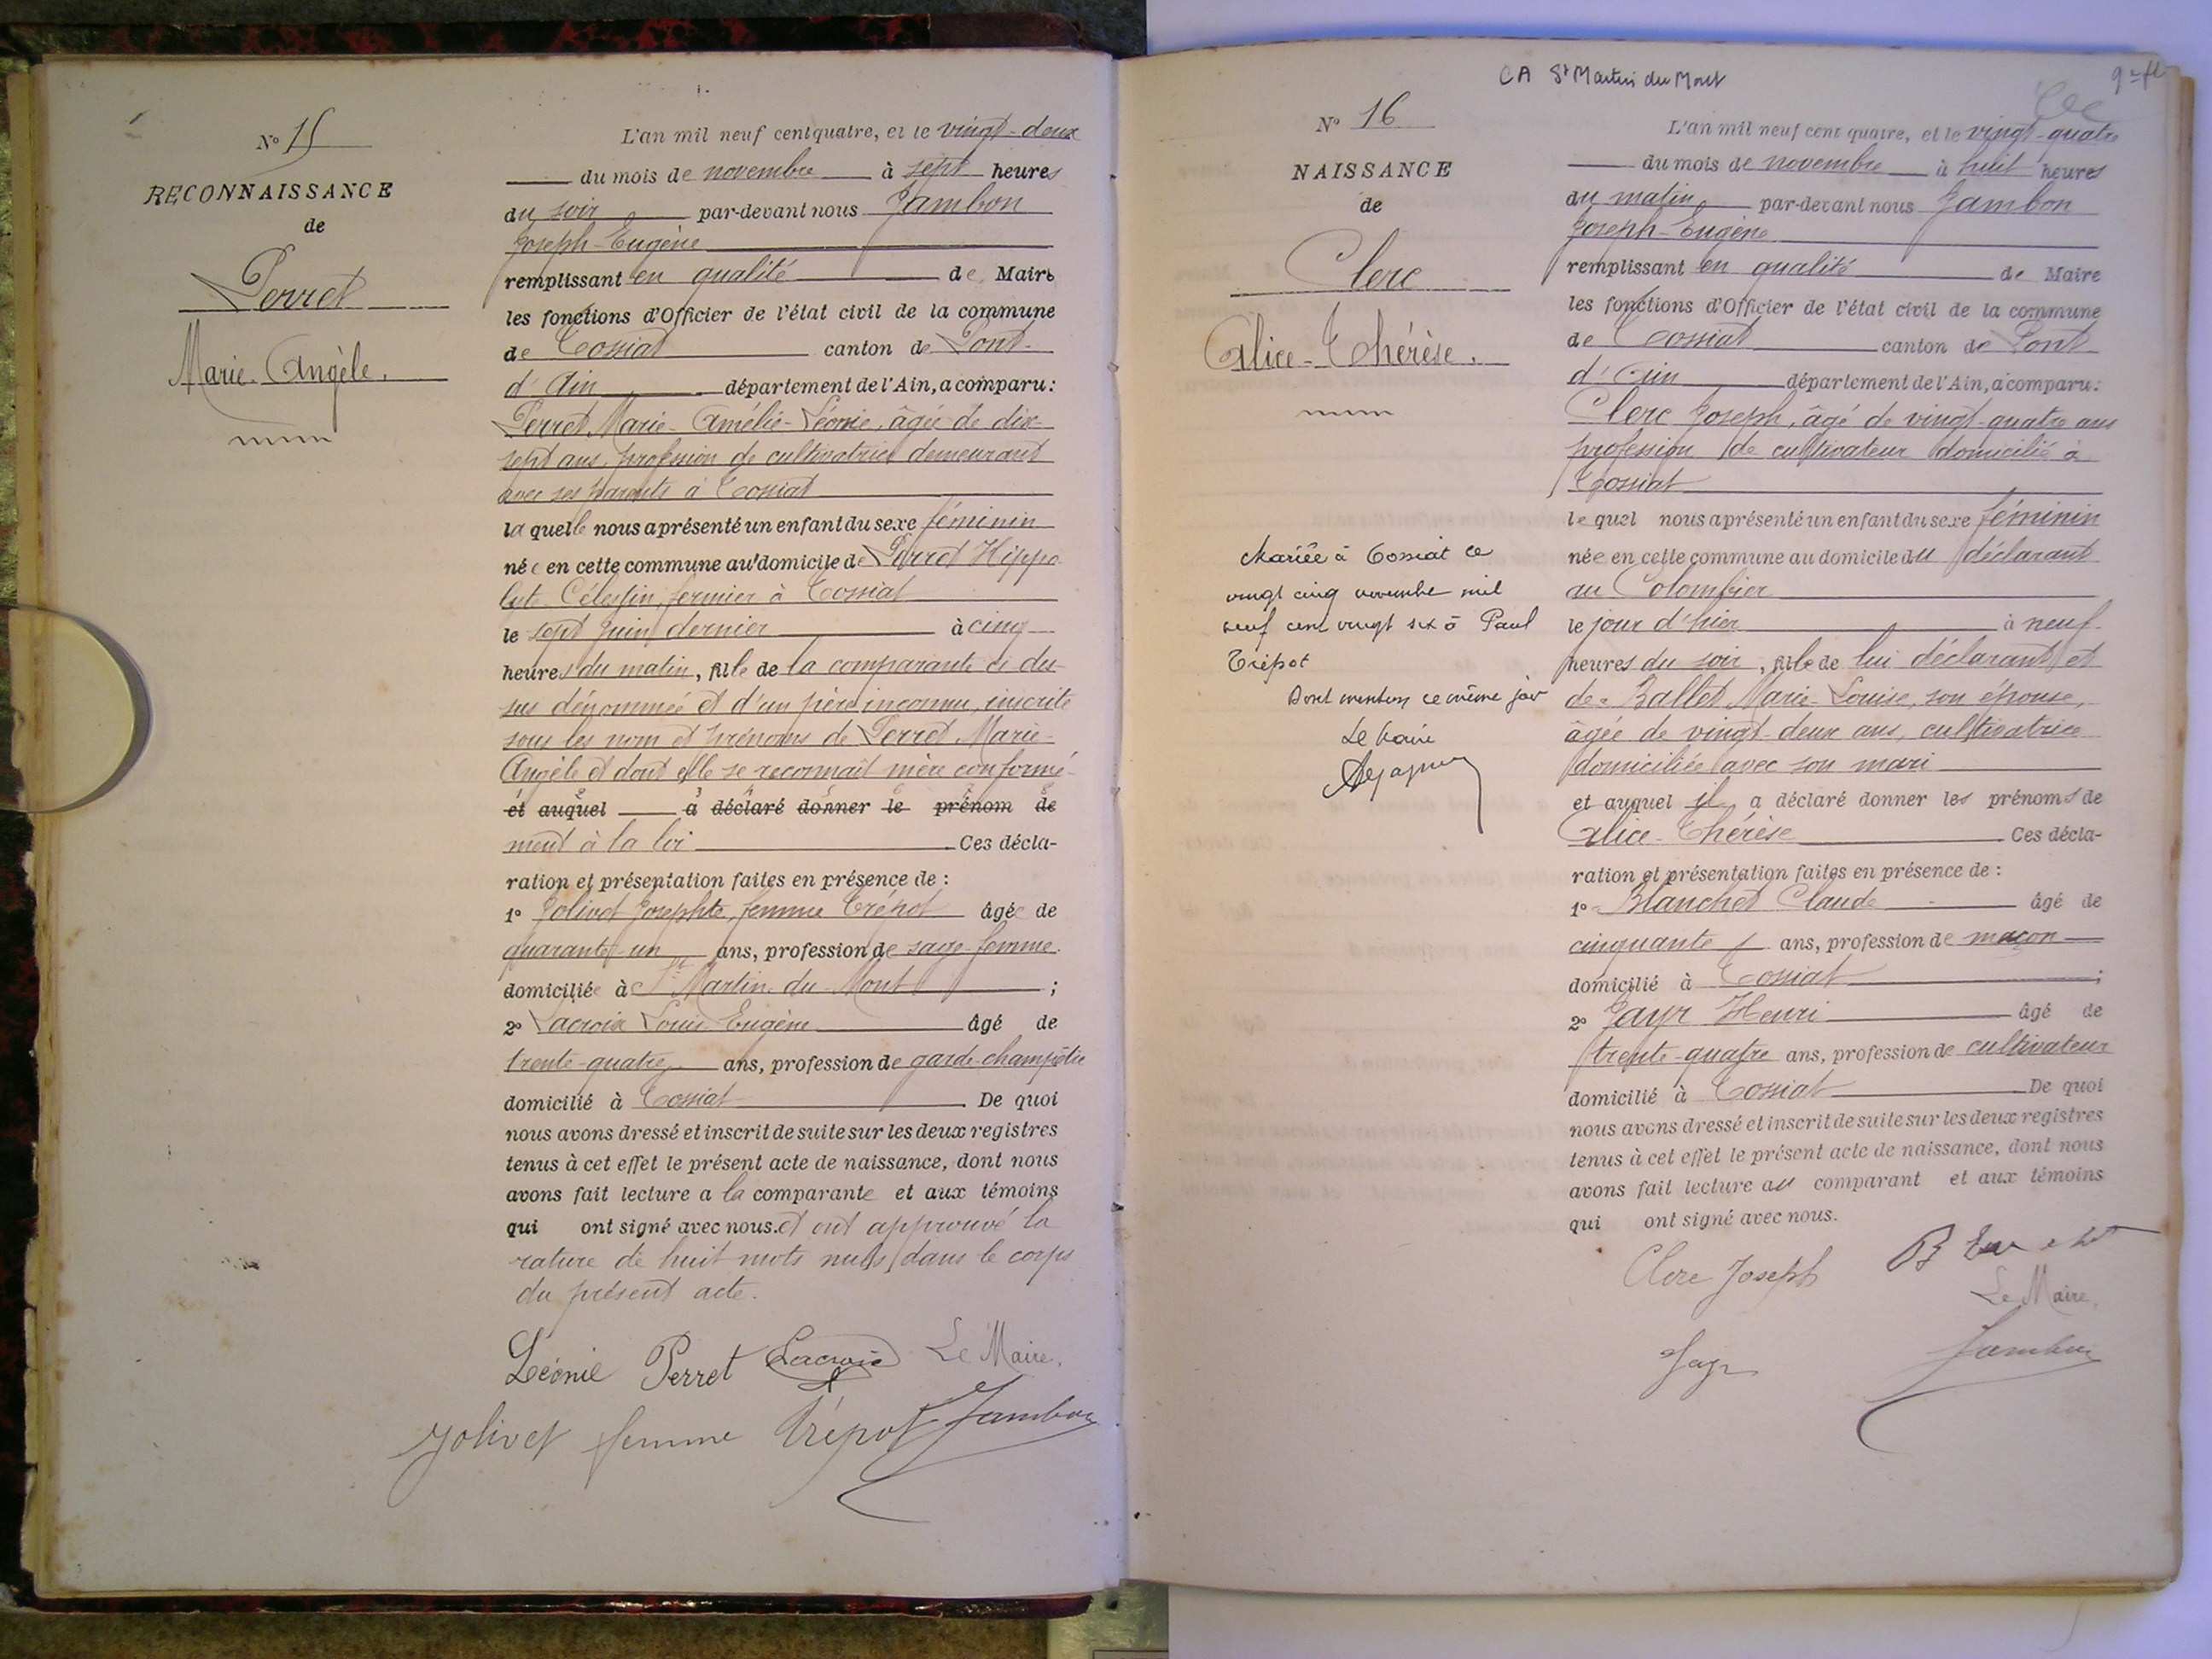 N° 15
RECONNAISSANCE
de
Perret
Marie-Angèle.
L'an mil neuf cent quatre, et le vingt-deux
du mois de novembre à sept heures
du soir par-devant nous Jambon
Joseph-Eugène
remplissant en qualité de Maire
les fonctions d'Officier de l'état civil de la commune
de Tossiat canton de Pont-
d'Ain département de l'Ain, a comparu:
Perret Marie-Amélie-Léonie, âgée de dix-
sept ans, profession de cultivatrice demeurant
avec ses parents à Tossiat
laquelle nous a présenté un enfant du sexe féminin
née en cette commune au domicile de Perret Hippo
lyte Célestin, fermier à Tossiat
le sept juin dernier à cinq
heures du matin, fille de la comparante ci-des-
sus dénommée et d'un père inconnu, inscrite
sous les nom et prénoms de Perret Marie-
Angèle et dont elle se reconnait mère conformé-
et auquel a déclaré donner le prénom de
ment à la loi Ces décla-
ration et présentation faites en présence de :
1° Jolivet Josephte, femme Trépot âgée de
quarante-un ans, profession de sage-femme
domiciliée à St Martin-du-Mont ;
2° Lacroix Louis-Eugène âgé de
trente-quatre ans, profession de garde-champêtre
domicilié à Tossiat De quoi
nous avons dressé et inscrit de suite sur les deux registres
tenus à cet effet le présent acte de naissance, dont nous
avons fait lecture a la comparante et aux témoins
qui ont signé avec nous. et ont approuvé la
rature de huit mots nuls dans le corps
du présent acte.
Léonie Perret Lacroix Le Maire,
Jolivet femme Trépot Jambon
CA St Martin du Mont
N° 16
NAISSANCE
de
Clerc
Alice-Thérèse.
Mariée à Tossiat le
vingt cinq novembre mil
neuf cent vingt six à Paul
Trépot
Dont mention ce même jour
Le Maire
L'an mil neuf cent quatre, et le vingt-quatre
du mois de novembre à huit heures
du matin par-devant nous Jambon
Joseph-Eugène
remplissant en qualité de Maire
les fonctions d'Officier de l'état civil de la commune
de Tossiat canton de Pont
d'Ain département de l'Ain, a comparu:
Clerc Joseph, âgé de vingt-quatre ans
profession de cultivateur domicilié à
Tossiat
lequel nous a présenté un enfant du sexe féminin
née en cette commune au domicile du déclarant
au Colombier
le jour d'hier à neuf
heures du soir, fille de lui déclarant et
de Ballet Marie-Louise, son épouse,
âgée de vingt-deux ans, cultivatrice
domiciliée avec son mari
et auquel il a déclaré donner les prénoms de
Alice-Thérèse Ces décla-
ration et présentation faites en présence de :
1° Blanchet Claude âgé de
cinquante ans, profession de maçon
domicilié à Tossiat ;
2° Jayr Henri âgé de
trente-quatre ans, profession de cultivateur
domicilié à Tossiat De quoi
nous avons dressé et inscrit de suite sur les deux registres
tenus à cet effet le présent acte de naissance, dont nous
avons fait lecture au comparant et aux témoins
qui ont signé avec nous.
Clerc Joseph
Le Maire,
Jayr Jambon